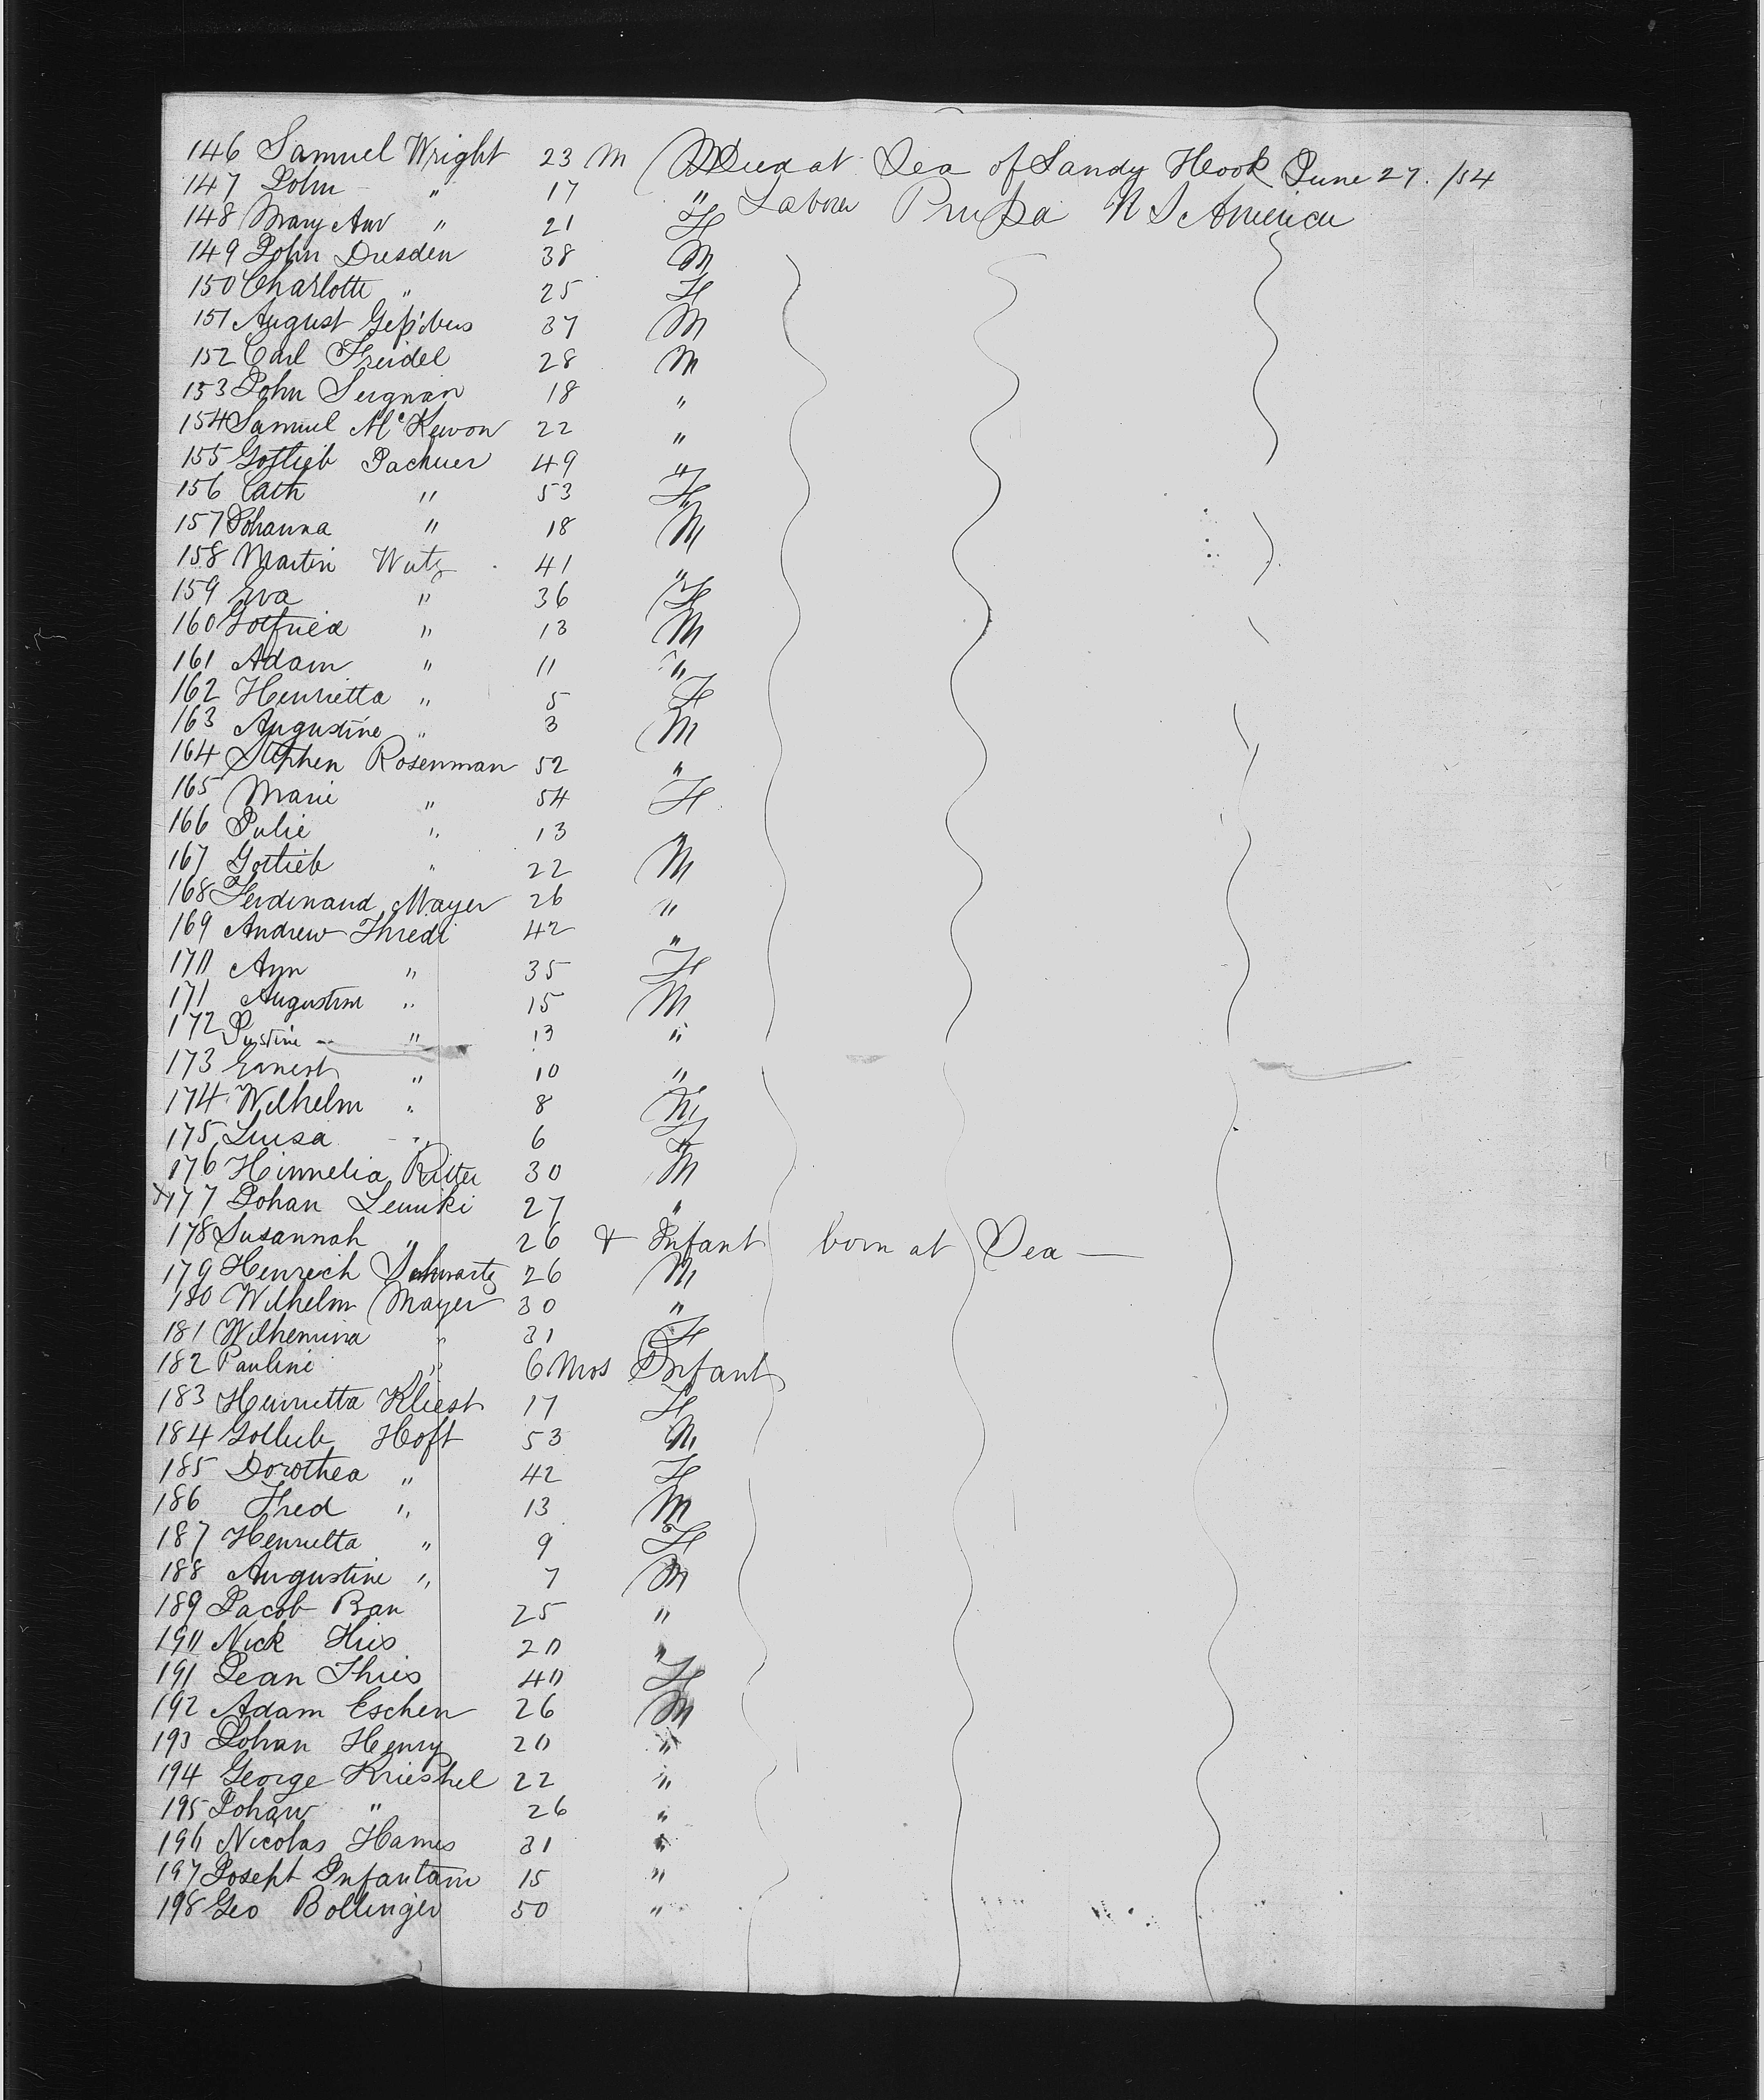 146 Samuel Wright 23 M Died at Sea of Sandy Hook June 27. /54
147 John " 17 " Laborer Prussia N S America
148 Mary Ann " 21 F
149 John Dresden 38 M
150 Charlotte " 25 F
151 August 37 M
152 Carl Freidel 28 M
153 John Seignan 18 "
154 Samuel McKewon 22 "
155 Gottlieb Pachuer 49 "
156 Cath " 53 F
157 Johanna " 18 M
158 Martin Wutz 41 "
159 Eva " 36 F
160 Gotfried " 13 M
161 Adam " 11 "
162 Henrietta " 5 F
163 Augustine " 3 M
164 Stephen Rosenman 52 "
165 Marie " 54 F
166 Julie " 13 "
167 Gottieb " 22 M
168 Ferdinand Mayer 26 "
169 Andrew Thredi 42 "
170 Ann " 35 F
171 Augustine " 15 M
172 Justine " 13 "
173 Ernest " 10 "
174 Wilhelm " 8 M
175 Luisa " 6 F
176 Himnelia Ritter 30 M
177 Johan Lemiki 27 "
178 Susannah " 26 & Infant born at Sea
179 Henrich Schwartz 26 M
180 Wilhelm Mayer 30 "
181 Wilhemina " 31 F
182 Pauline " 6 Mos Infant
183 Henrietta Kliest 17 F
184 Gotlieb Hoft 53 M
185 Dorothea " 42 F
186 Fred " 13 M
187 Henrietta " 9 F
188 Augustine " 7 M
189 Jacob Ban 25 "
190 Nick Hies 20 "
191 Jean Thies 40 F
192 Adam Eschen 26 M
193 Johan Henry 20 "
194 George Krieshel 22 "
195 Johan " 26 "
196 Nicolas Hames 31 "
197 Joseph Infantam 15 "
198 Geo Bollinger 50 "